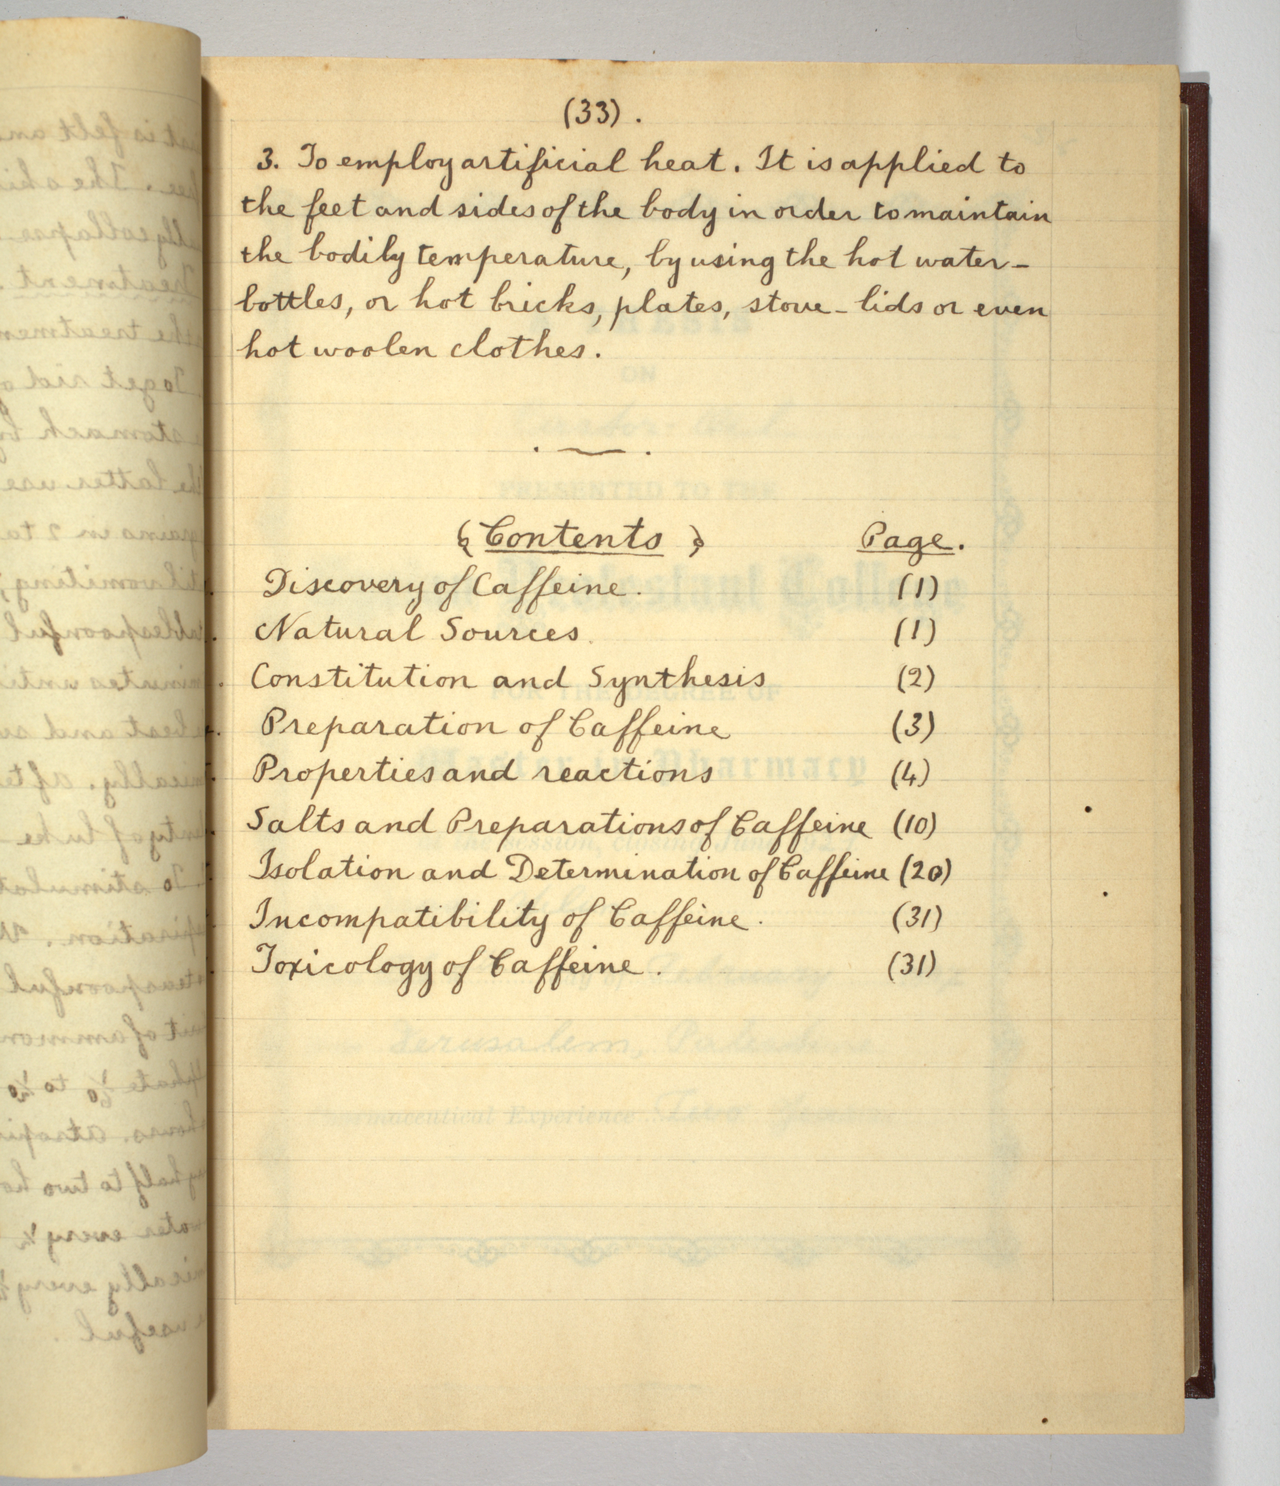 (33).
3. To employ artificial heat. It is applied to
the feet and sides of the body in order to maintain
the bodily temperature, by using the hot water-
bottles, or hot bricks, plates, stove-lids or even
hot woolen clothes.
Contents Page.
Discovery of Caffeine. (1)
Natural Sources. (1)
Constitution and Synthesis (2)
Preparation of Caffeine (3)
Properties and reactions (4)
Salts and Preparations of Caffeine (10)
Isolation and Determination of Caffeine (20)
Incompatibility of Caffeine. (31)
Toxicology of Caffeine. (31)